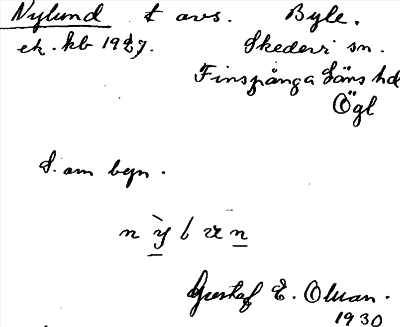 Nylund t avs. Byle.
ek. kb 1927. Skedevi sn.
Finspånga läns hd
Ögl
S. om byn.
Gustaf E. Olsson.
1930